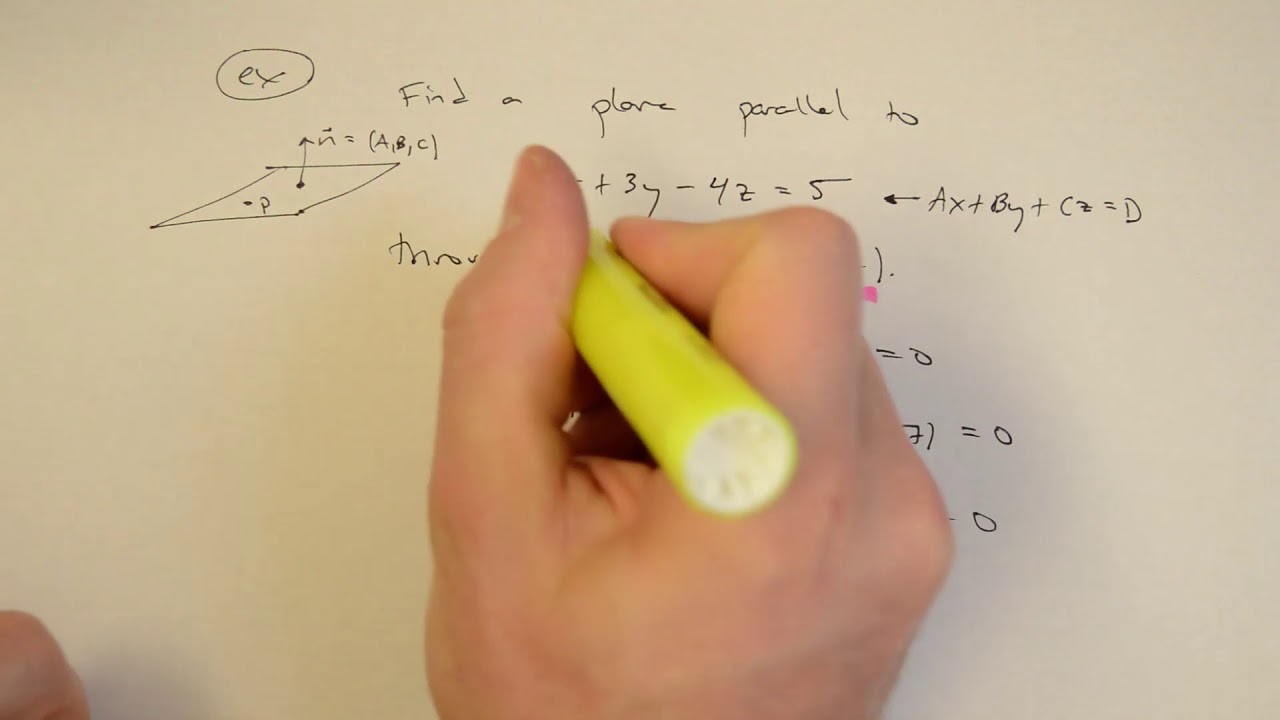 ex
Find a plane parallel to
n⃗ = (A,B,C)
P
+ 3y - 4z = 5 ← Ax+By+Cz=D
throu
).
= 0
7) = 0
0